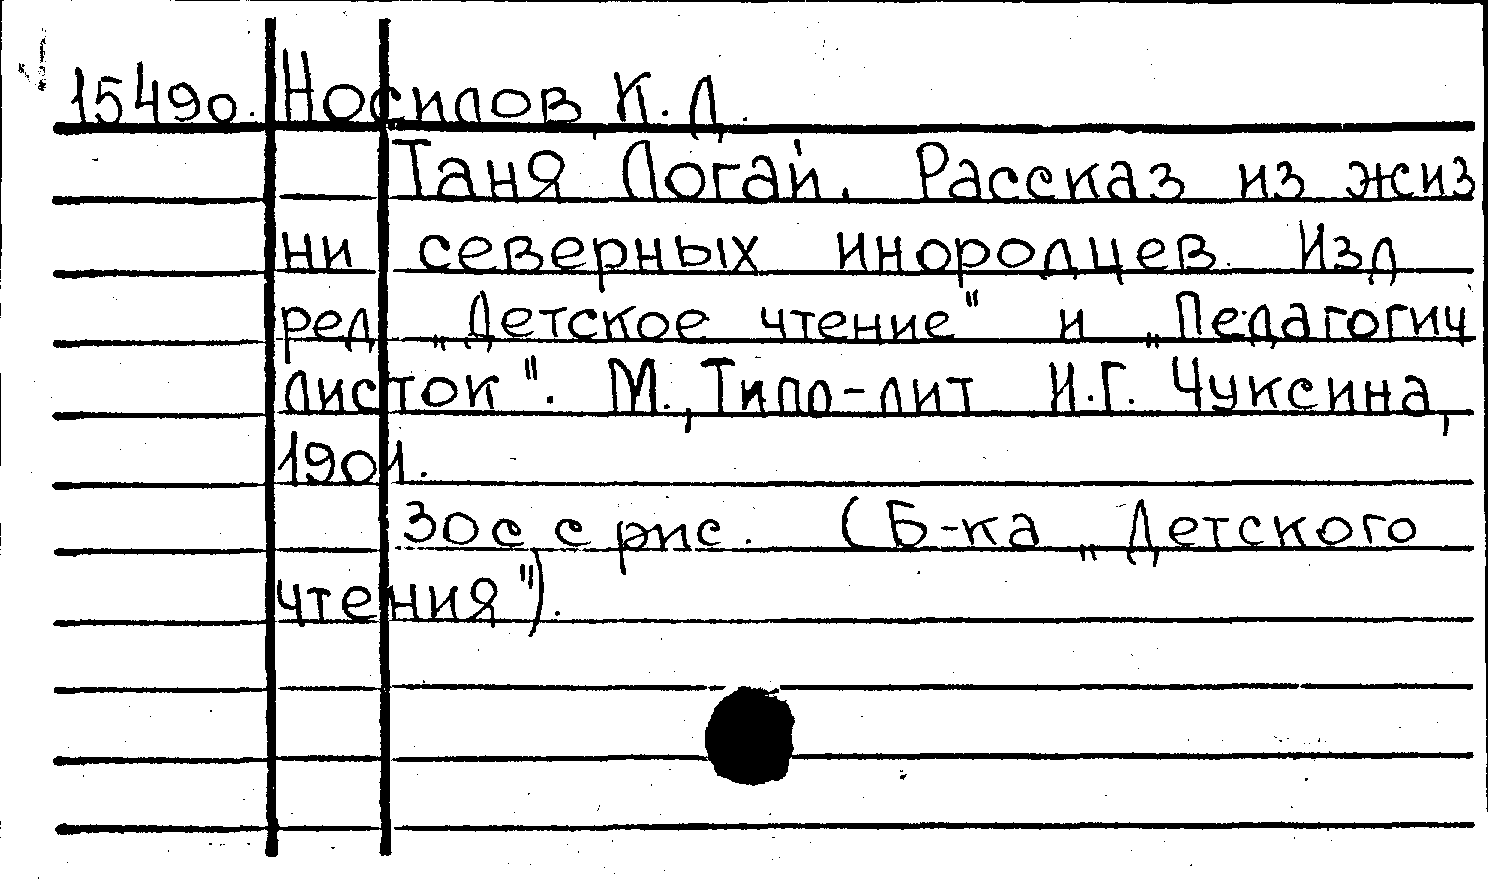 15490. Носилов, К. Д.
Таня Логай. Рассказ из жиз
ни северных инородцев. Изд
ред „Детское чтение" и „Педагогич
листок". М., Типо-лит И.Г. Чуксина,
1901.
30 с с рис. (Б-ка „Детского
чтения").